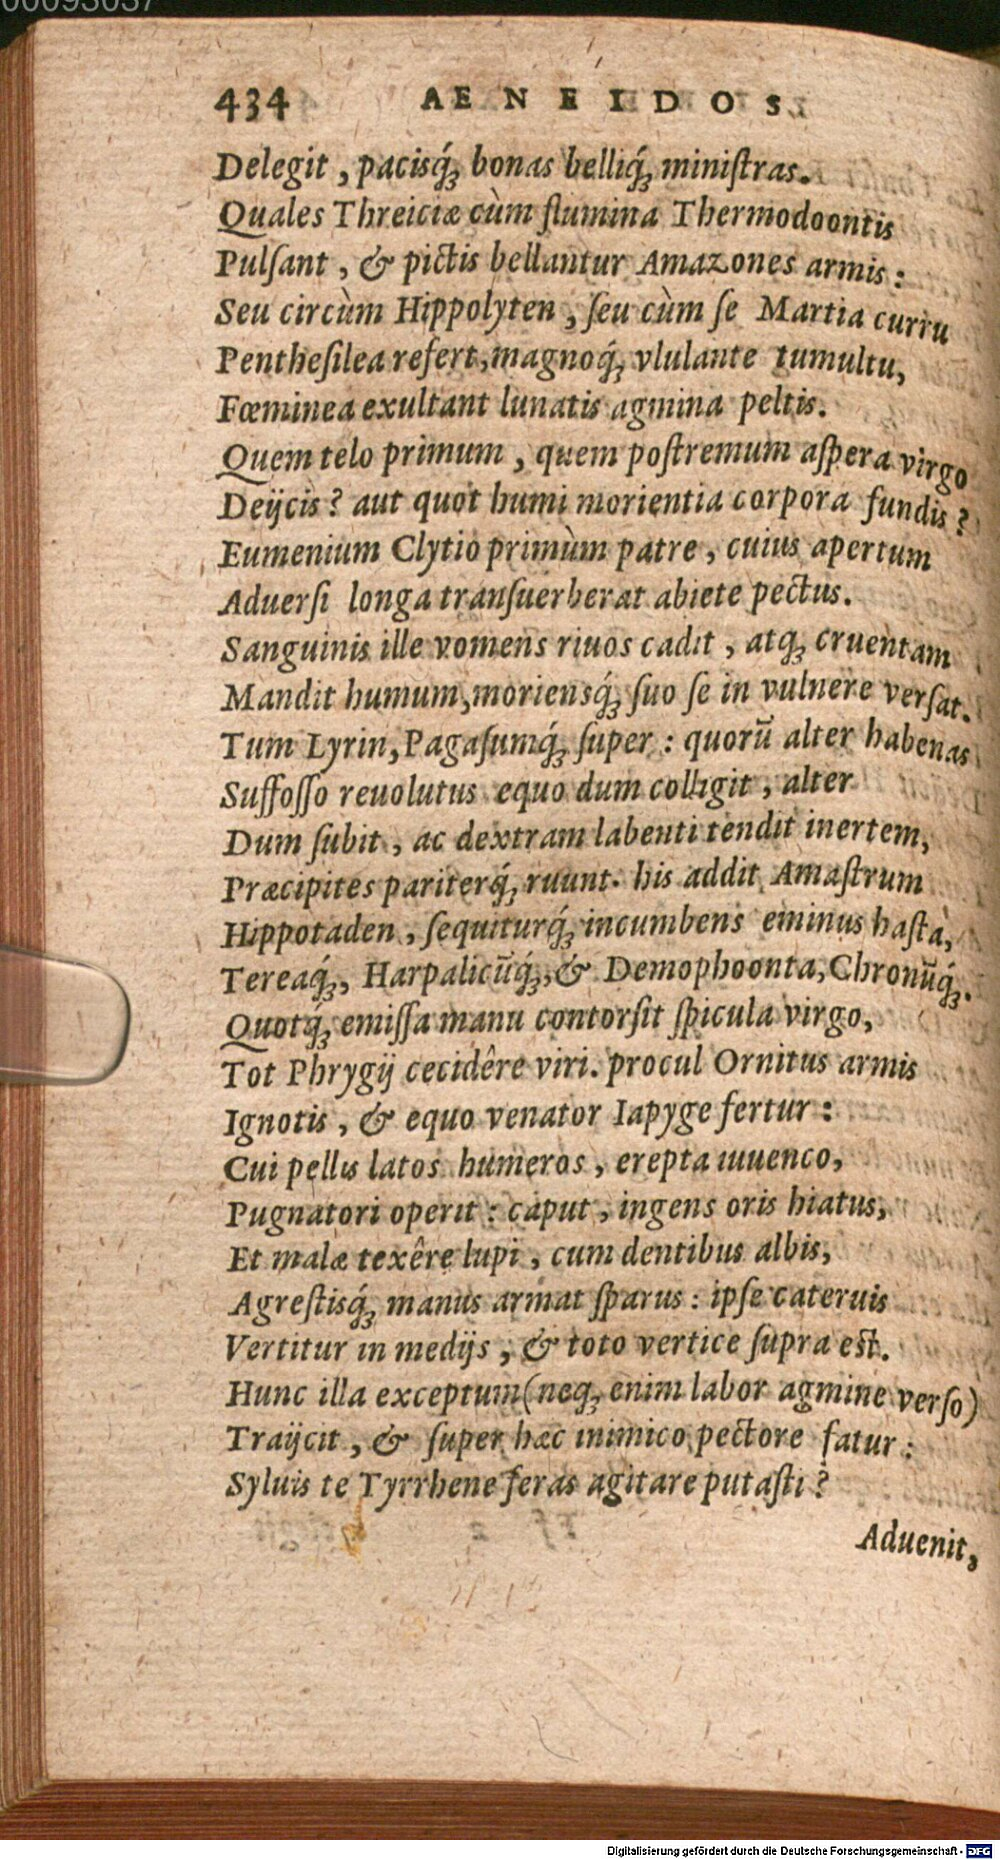 00093037
434 AENEIDOS
Delegit, pacisq́; bonas belliq́; miniſtras.
Quales Threiciæ cùm flumina Thermodoontis
Pulſant, & pictis bellantur Amazones armis:
Seu circùm Hippolyten, ſeu cùm ſe Martia curru
Pentheſilea refert, magnoq́; vlulante tumultu,
Fœminea exultant lunatis agmina peltis.
Quem telo primum, quem poſtremum aſpera virgo
Deijcis? aut quot humi morientia corpora fundis?
Eumenium Clytio primùm patre, cuius apertum
Aduerſi longa tranſuerberat abiete pectus.
Sanguinis ille vomens riuos cadit, atq; cruentam
Mandit humum, moriensq́; ſuo ſe in vulnere verſat.
Tum Lyrin, Pagaſumq́; ſuper: quorũ alter habenas
Suffoſſo reuolutus equo dum colligit, alter
Dum ſubit, ac dextram labenti tendit inertem,
Præcipites pariterq́; ruunt. his addit Amaſtrum
Hippotaden, ſequiturq́; incumbens eminus haſta,
Tereaq́;, Harpalicũq́;, & Demophoonta, Chronũq́;.
Quotq́; emiſſa manu contorſit ſpicula virgo,
Tot Phrygij cecidêre viri. procul Ornitus armis
Ignotis, & equo venator Iapyge fertur:
Cui pellis latos humeros, erepta iuuenco,
Pugnatori operit: caput, ingens oris hiatus,
Et malæ texêre lupi, cum dentibus albis,
Agreſtisq́; manus armat ſparus: ipſe cateruis
Vertitur in medijs, & toto vertice ſupra eſt.
Hunc illa exceptum (neq; enim labor agmine verſo)
Traijcit, & ſuper hæc inimico pectore fatur:
Syluis te Tyrrhene feras agitare putaſti?
Aduenit,
Digitalisierung gefördert durch die Deutsche Forschungsgemeinschaft - DFG